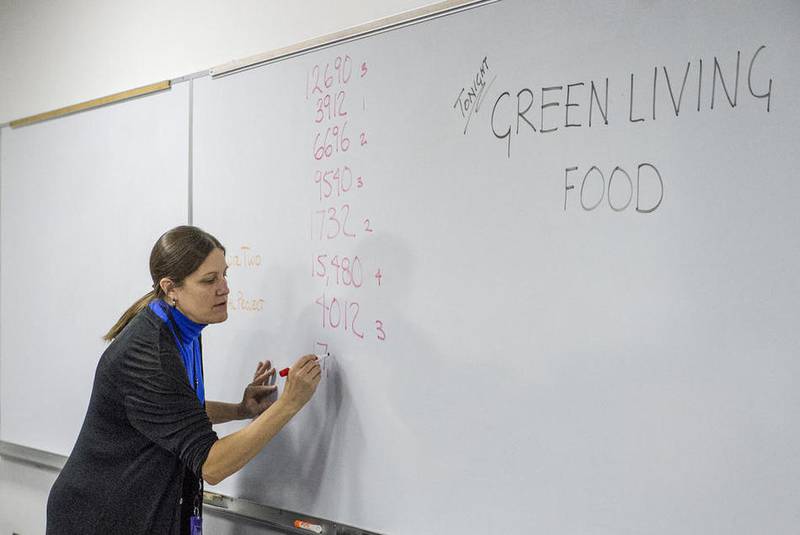 Two
Project
12690 3
3912 1
6696 2
9540 3
1732 2
15,480 4
4012 3
17
TONIGHT
GREEN LIVING
FOOD